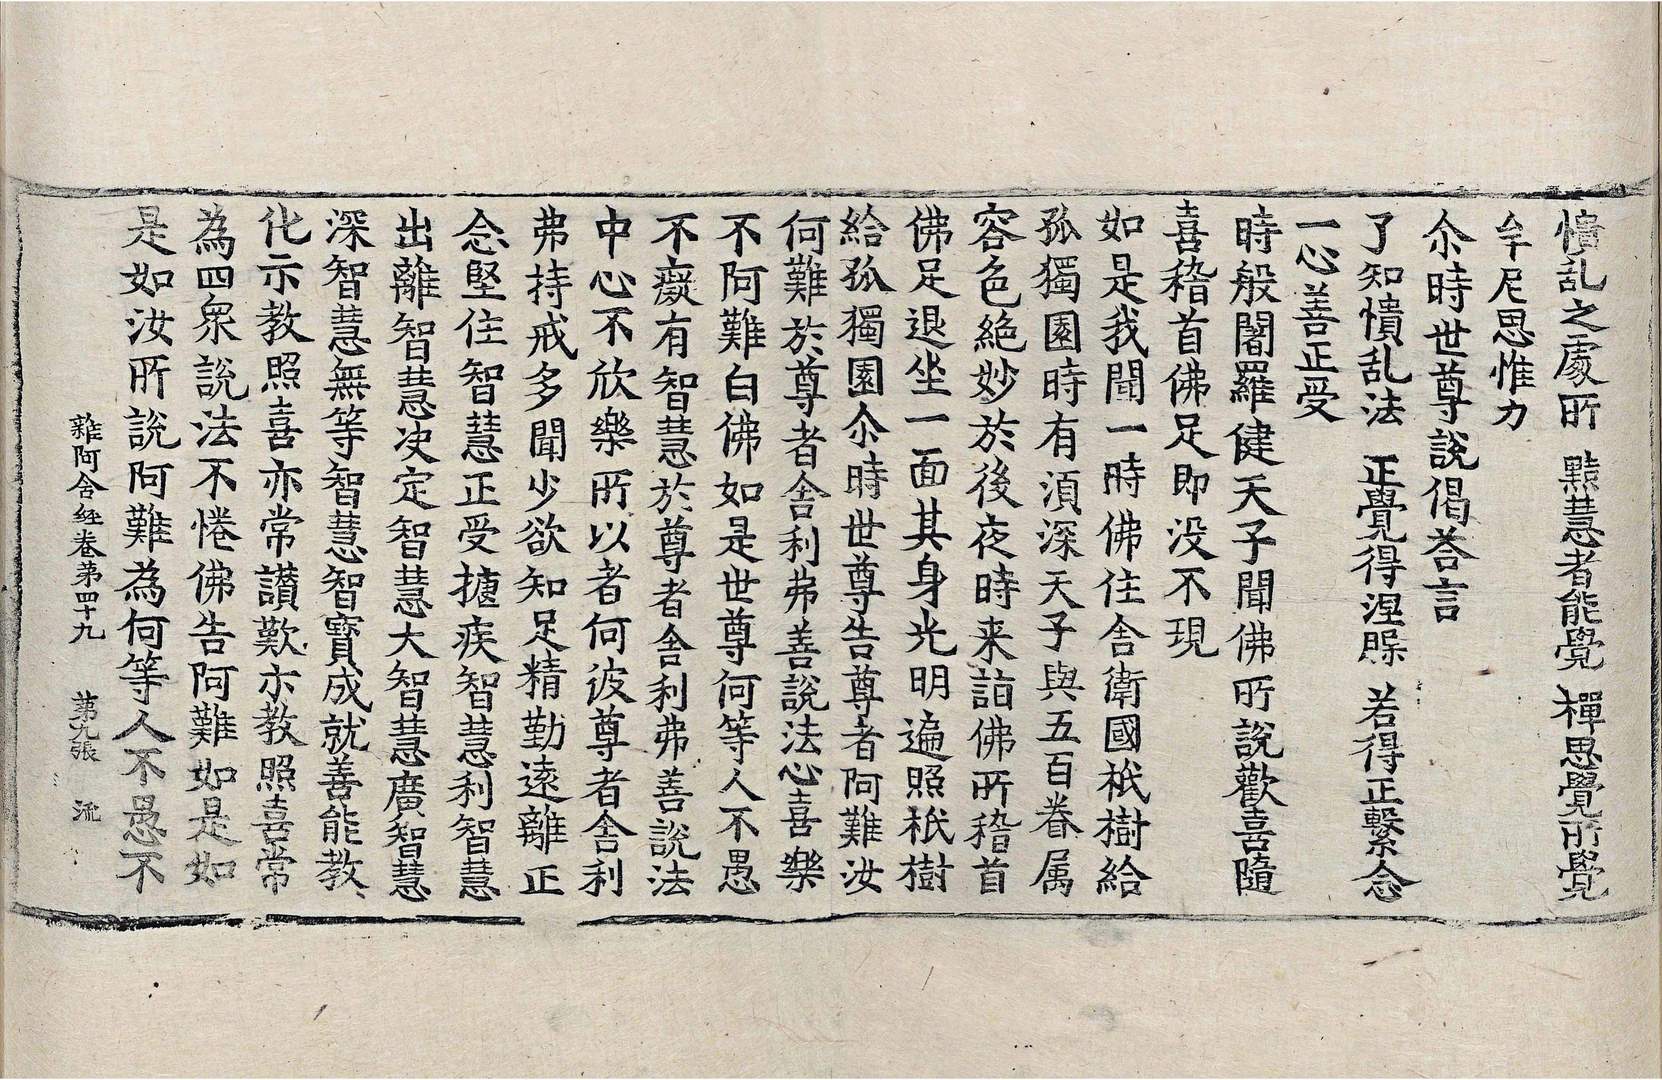 憒乱之處所 黠慧者能覺 禪思覺所覺
牟尼思惟力
尒時世尊說偈荅言
了知憒乱法 正覺得涅槃 若得正繫念
一心善正受
時般闍羅健天子聞佛所說歡喜隨
喜稽首佛足即没不現
如是我聞一時佛住舍衛國祇樹給
孤獨園時有湏深天子與五百眷属
容色絶妙於後夜時来詣佛所稽首
佛足退坐一面其身光明遍照祇樹
給孤獨園尒時世尊告尊者阿難汝
何難於尊者舍利弗善說法心喜樂
不阿難白佛如是世尊何等人不愚
不癡有智慧於尊者舍利弗善說法
中心不欣樂所以者何彼尊者舍利
弗持戒多聞少欲知足精勤遠離正
念堅住智慧正受揵疾智慧利智慧
出離智慧决定智慧大智慧廣智慧
深智慧無等智慧智寶成就善能教
化示教照喜亦常讃歎示教照喜常
為四衆說法不惓佛告阿難如是如
是如汝所說阿難為何等人不愚不
雜阿含経卷第四十九 第九張 流